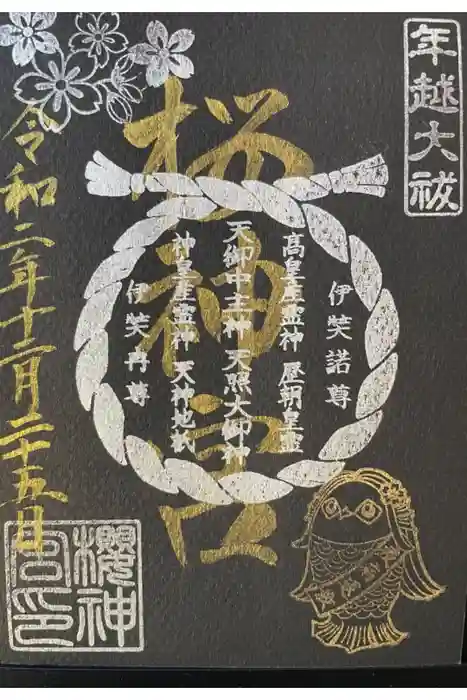 年越大祓
桜神宮
伊弉諾尊
高皇産霊神 歴朝皇霊
天御中主神 天照大御神
神皇産霊神 天神地祇
伊弉冉尊
令和二年十二月二十五日
櫻神
宮印